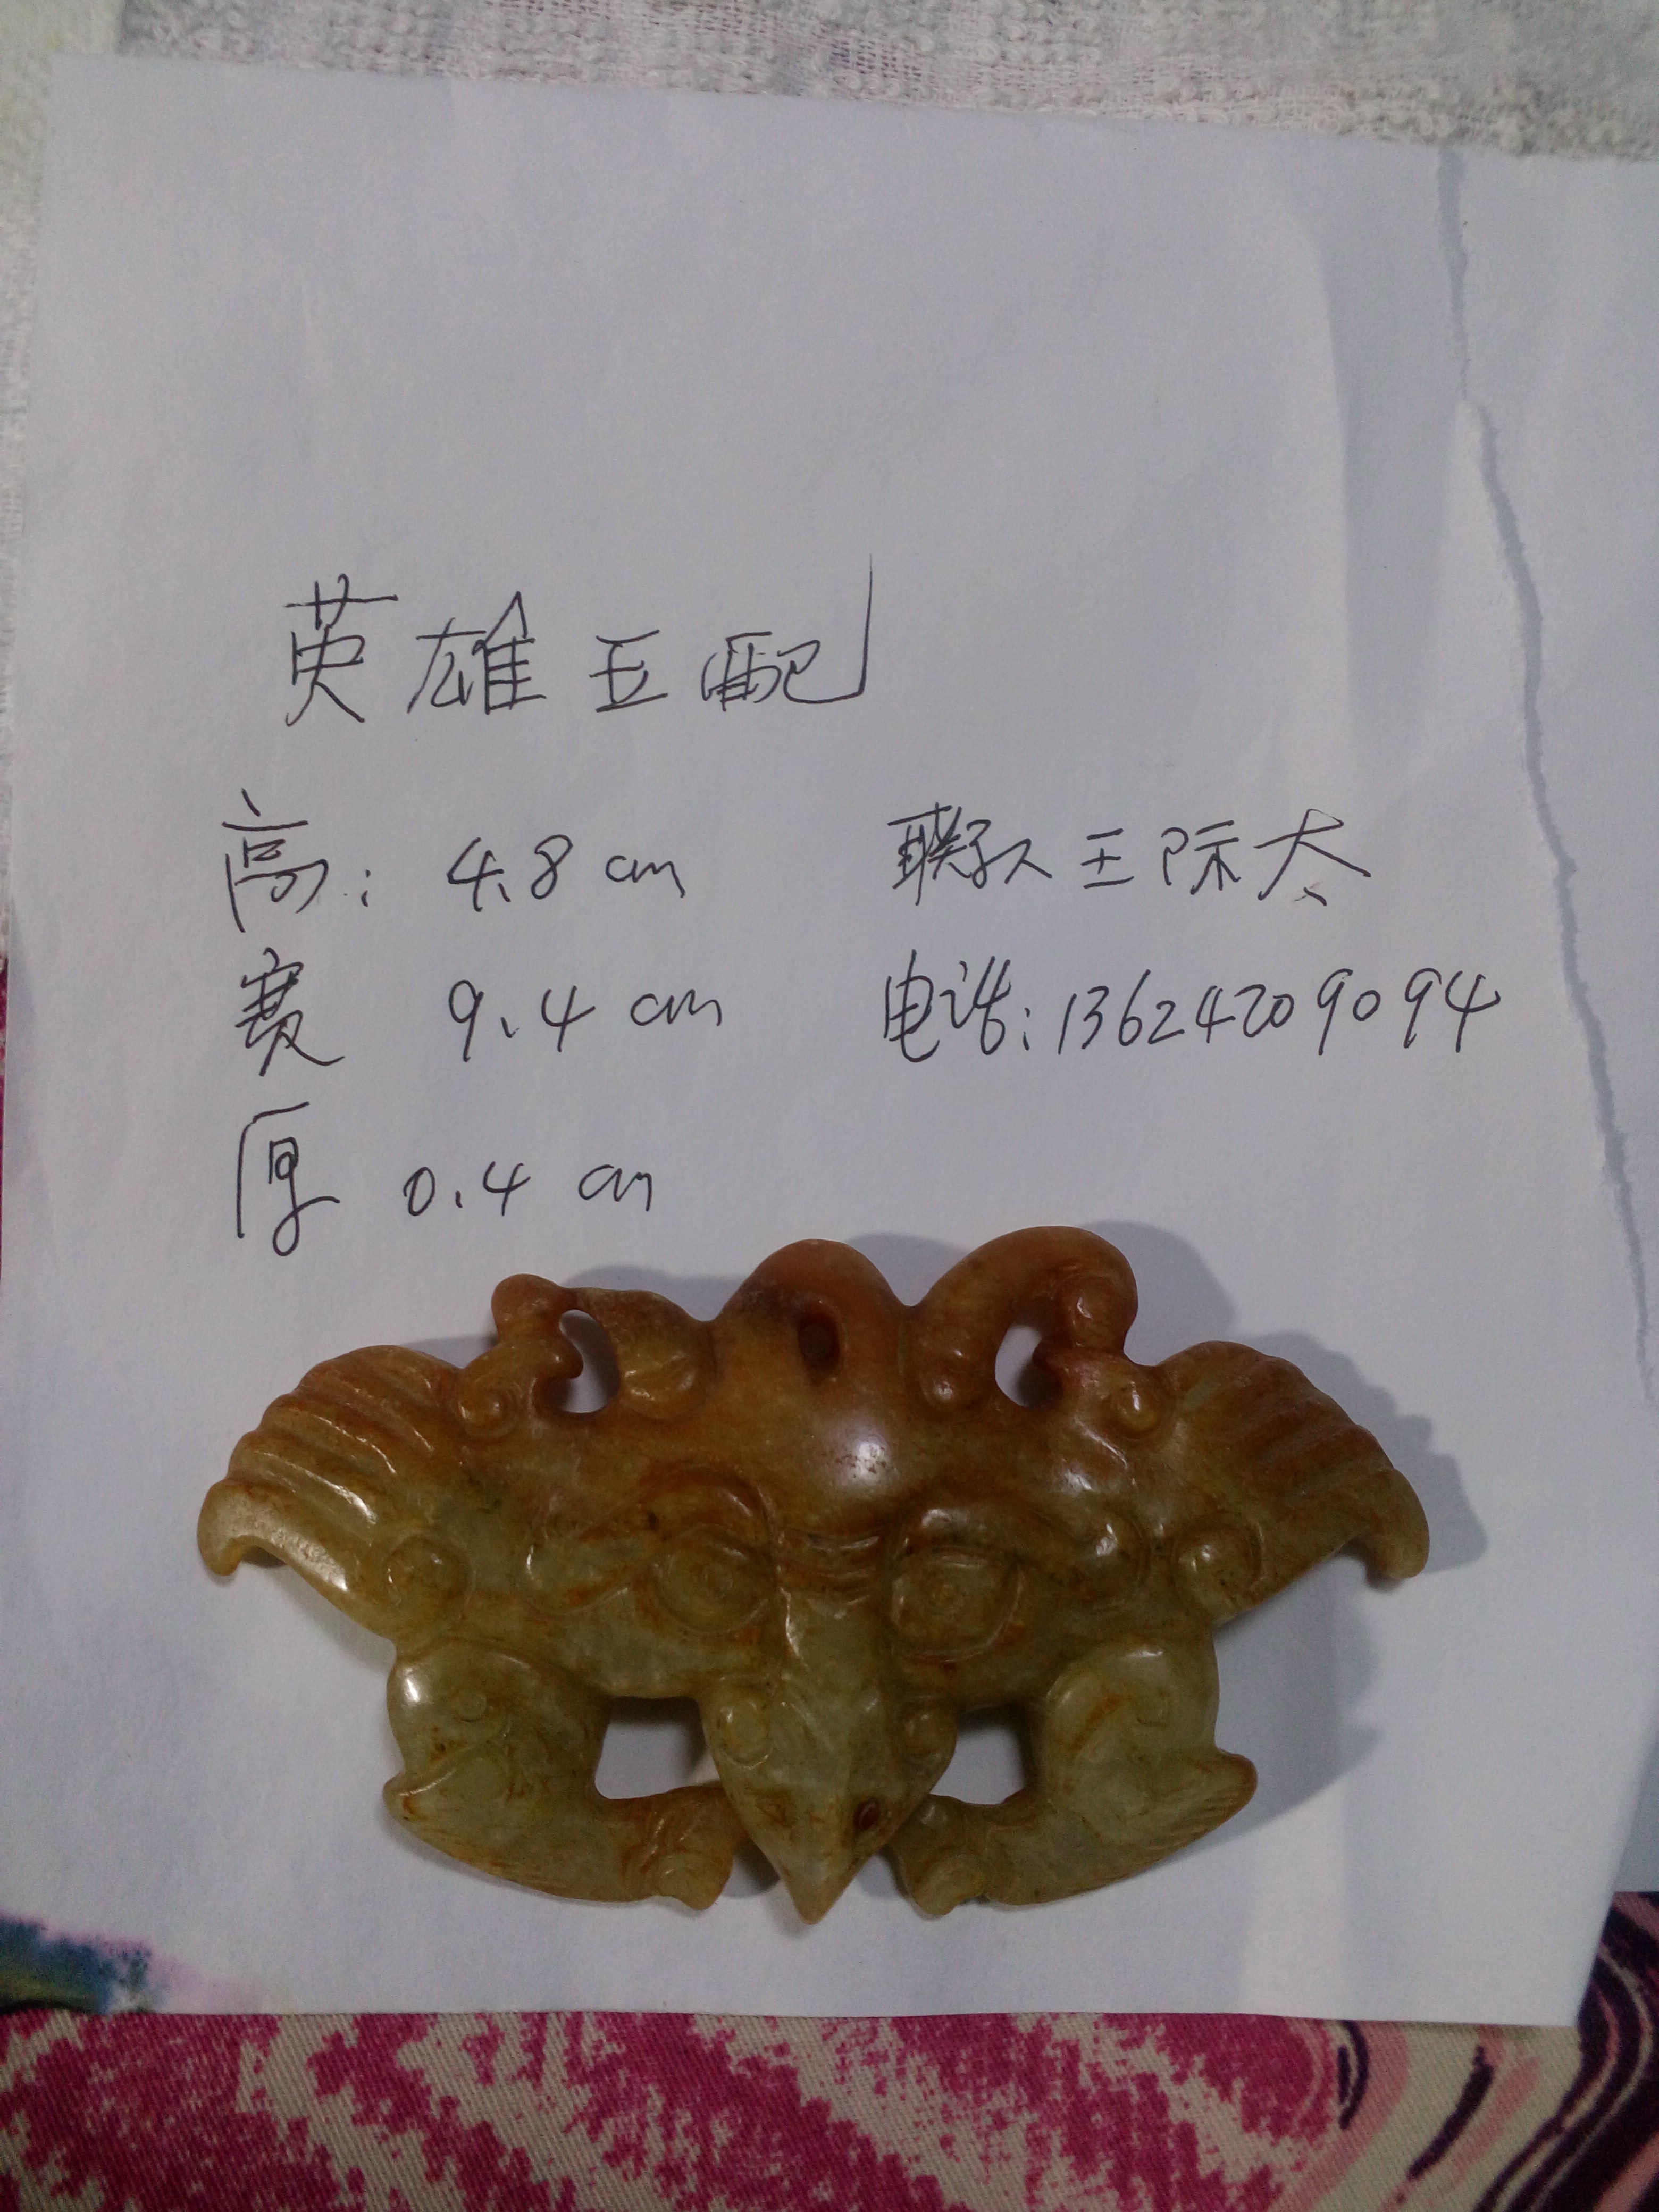 英雄玉配
高: 4.8 cm
宽 9.4 cm
厚 0.4 cm
联系人 王际太
电话: 13624209094